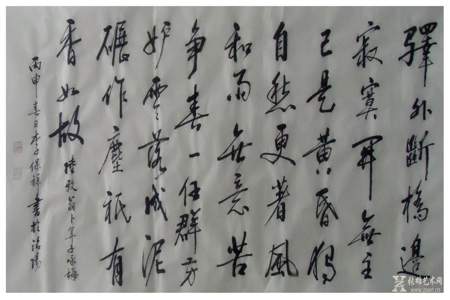 驛外斷橋邊
寂寞開無主
已是黄昏獨
自愁更著風
和雨無意苦
争春一任群芳
妒零落成泥
碾作塵祇有
香如故 陸放翁卜算子咏梅
丙申春日 書於洛陽
张雄艺术网